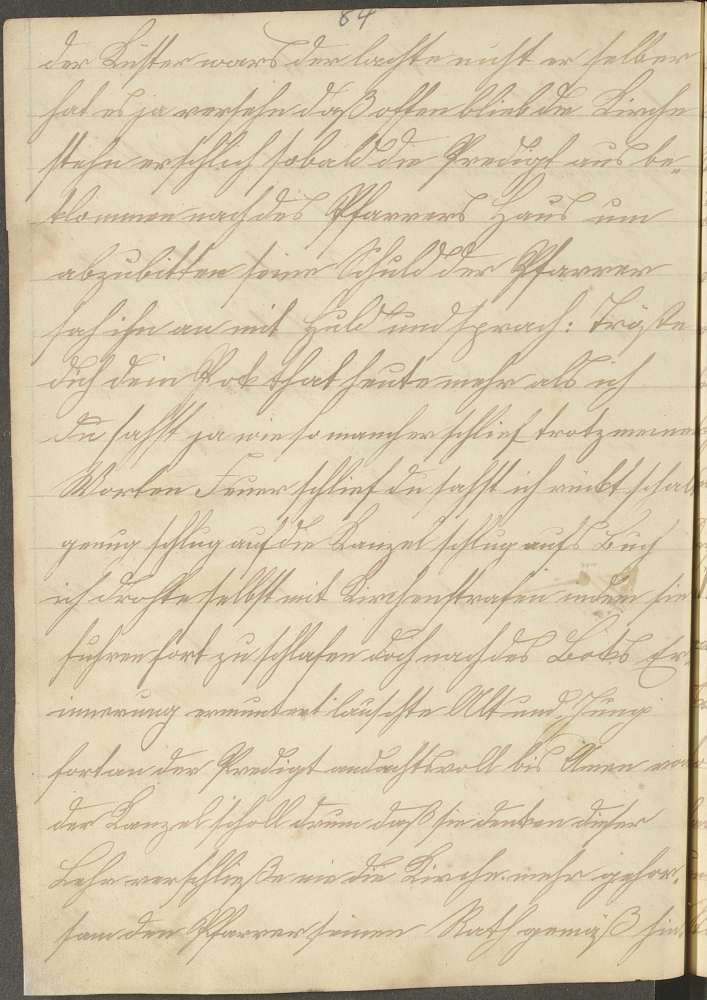 84
der Küster wars der lachte nicht er selber
hat es ja versehn daß offen blieb die Kirche
stehn erschlich sobald die Predigt aus be-
klommen nach des Pfarrers Haus um
abzubitten seine Schuld der Pfarrer
sah ihn an mit Huld und sprach: Tröste
dich dein Bok that heute mehr als ich
du sahst ja wie so mancher schlief trotz meiner
Worten Feuer schlief du sahst ich rückt schalt
genug schlug auf die Kanzel schlug aufs Buch
ich drohte selbst mit Kirchenstrafen indem sie
fuhren fort zu schlafen doch nach des Boks Er-
innerung ermuntert lauschte Alt und Jung
fortan der Predigt andachtsvoll bis Amen von
der Kanzel scholl drum daß sie denken dieser
Lehr verschließe nie die Kirche mehr gehor-
sam dem Pfarrer seinem Rath gemäß